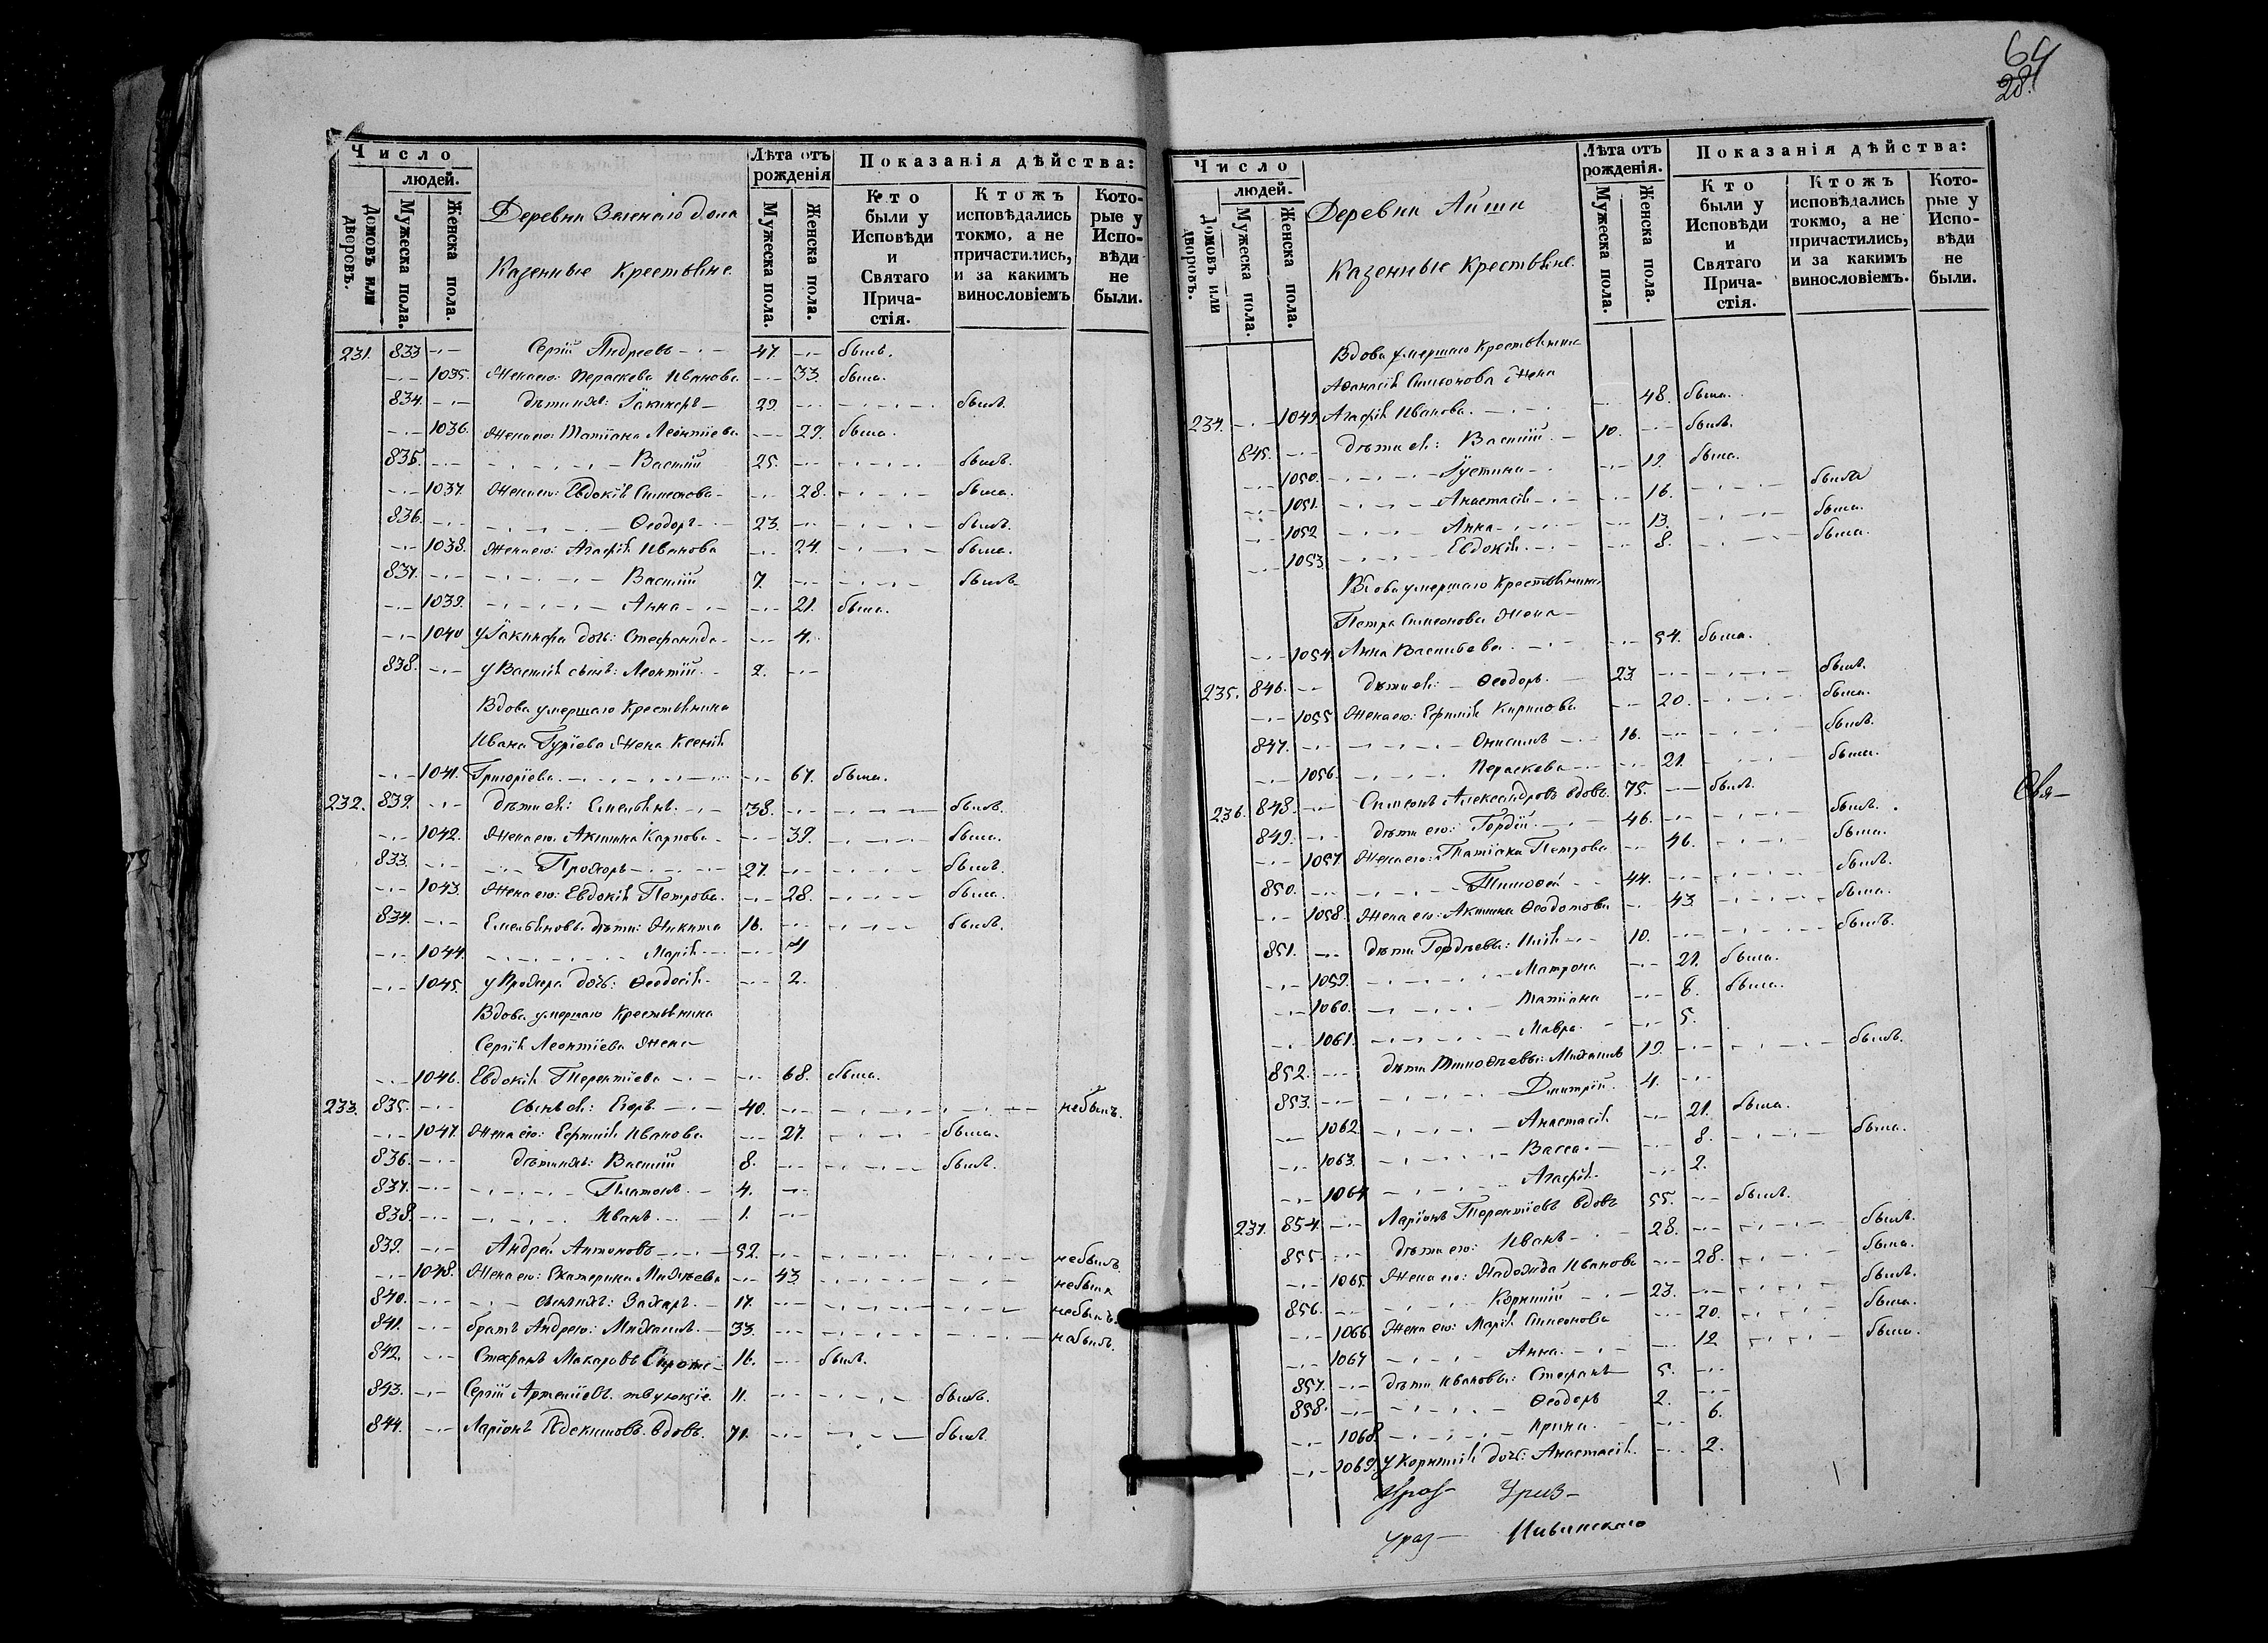 Число
людей.
Домовъ или дворовъ.
Мужеска пола.
Женска пола.
Деревни Зеленаго дола
Казенные Крестьяне.
Лѣта отъ рожденія
Мужеска пола.
Женска пола.
Показанія дѣйства:
Кто были у Исповѣди и Святаго Прича-стія.
Ктожъ исповѣдались токмо, а не причастились, и за какимъ винословіемъ
Кото-рые у Испо-вѣди не были.
231. 833 Сергій Андреевъ 47. былъ.
1035. Жена его: Параскева Иванова 33. была.
834. Дѣти ихъ: Іакинфъ 29. былъ.
1036. Жена его: Татіана Леонтіева 29. была.
835. Василій 25. былъ.
1037. Жена его: Евдокія Симеонова 28. была.
836. Ѳеодоръ 23. былъ.
1038. Жена его: Агафія Иванова 24. была.
837. Василій 7. былъ
1039. Анна 21. была.
1040 у Іакинфа дочь: Стефанида 4.
838. у Василія сынъ: Леонтій 2.
Вдова умершаго Крестьянина
Ивана Гуріева Жена Ксенія
1041. Григоріева. 67. была.
232. 839. Дѣти ея: Емельянъ 38. былъ.
1042. Жена его. Акилина Карпова 39. была.
833. Прохоръ 27. былъ.
1043. Жена его: Евдокія Петрова. 28. была.
834. Емельяновы дѣти: Никита 16. былъ.
1044. Марія 4
1045. у Прохора дочь: Ѳеодосія 2.
Вдова умершаго Крестьянина
Сергія Леонтіева Жена
1046. Евдокія Терентіева 68. была.
233. 835. Сынъ ея: Егоръ 40. небылъ.
1047. Жена его: Евфимія Иванова 27. была.
836. Дѣти ихъ: Василій 8. былъ.
837. Платонъ 4.
838. Иванъ 1.
839. Андрей Антоновъ 52. небылъ.
1048. Жена его: Екатерина Михѣева 43. небыла
840. сынъ ихъ: Захаръ 17. небылъ.
841. братъ Андрею: Михаилъ 33. небылъ.
842. Стефанъ Макаровъ Сирота 16. былъ.
843. Сергій Артеміевъ 11. былъ.
844. Ларіонъ вдовъ. 71. былъ.
64
28.
Число
людей.
Домовъ или дворовъ.
Мужеска пола.
Женска пола.
Деревни Айши
Казенные Крестьяне.
Лѣта отъ рожденія.
Мужеска пола.
Женска пола.
Показанія дѣйства:
Кто были у Исповѣди и Святаго Прича-стія.
Ктожъ исповѣдались токмо, а не причастились, и за какимъ винословіемъ.
Кото-рые у Испо-вѣди не были.
Вдова умершаго Крестьянина
Аѳанасія Симеонова Жена
234. 1049 Агафія Иванова. 48. была.
845. Дѣти ея: Василій 10. былъ.
1050. Іустина 19. была.
1051. Анастасія 16. была
1052 Анна 13. была.
1053. Евдокія 8. была.
Вдова умершаго Крестьянина
Петра Симеонова Жена
1054. Анна Васильева 54. была.
235. 846. Дѣти ея: Ѳеодоръ 23 былъ.
1055 Жена его: Евфимія Кирилова 20. была.
847. Онисимъ 16. былъ.
1056. Параскева 21. была.
236. 848. Симеонъ Александровъ вдовъ. 75. былъ.
849. Дѣти его: Гордій 46. былъ.
1057. Жена его: Татіана Петрова 46. была.
850. Тимоѳей 44. былъ.
1058. Жена его: Акилина Ѳеодотова 43 была.
851. Дѣти Гордѣевы: Илія 10. былъ.
1059. Матрона 21. была.
1060. Татіана 8. была.
1061. Мавра 5.
852. Дѣти Тимоѳеевы: Михаилъ 19. былъ.
853. Дмитрій 4.
1062. Анастасія 21. была.
1063. Васса 8. была.
1064 Агафія 2.
237. 854. Ларіонъ Терентіевъ вдовъ 55. былъ.
855 Дѣти его: Иванъ 28. былъ.
1065. Жена его: Надежда Иванова 28. была.
856. Корнилій 23. былъ.
1066. Жена его: Марія Симеонова 20. была.
1067 Анна 12 была.
857. Дѣти Ивановы: Стефанъ 5.
858. Ѳеодоръ 2.
1068. Ирина 6.
1069. у Корнилія дочь: Анастасія 2.
Свя—